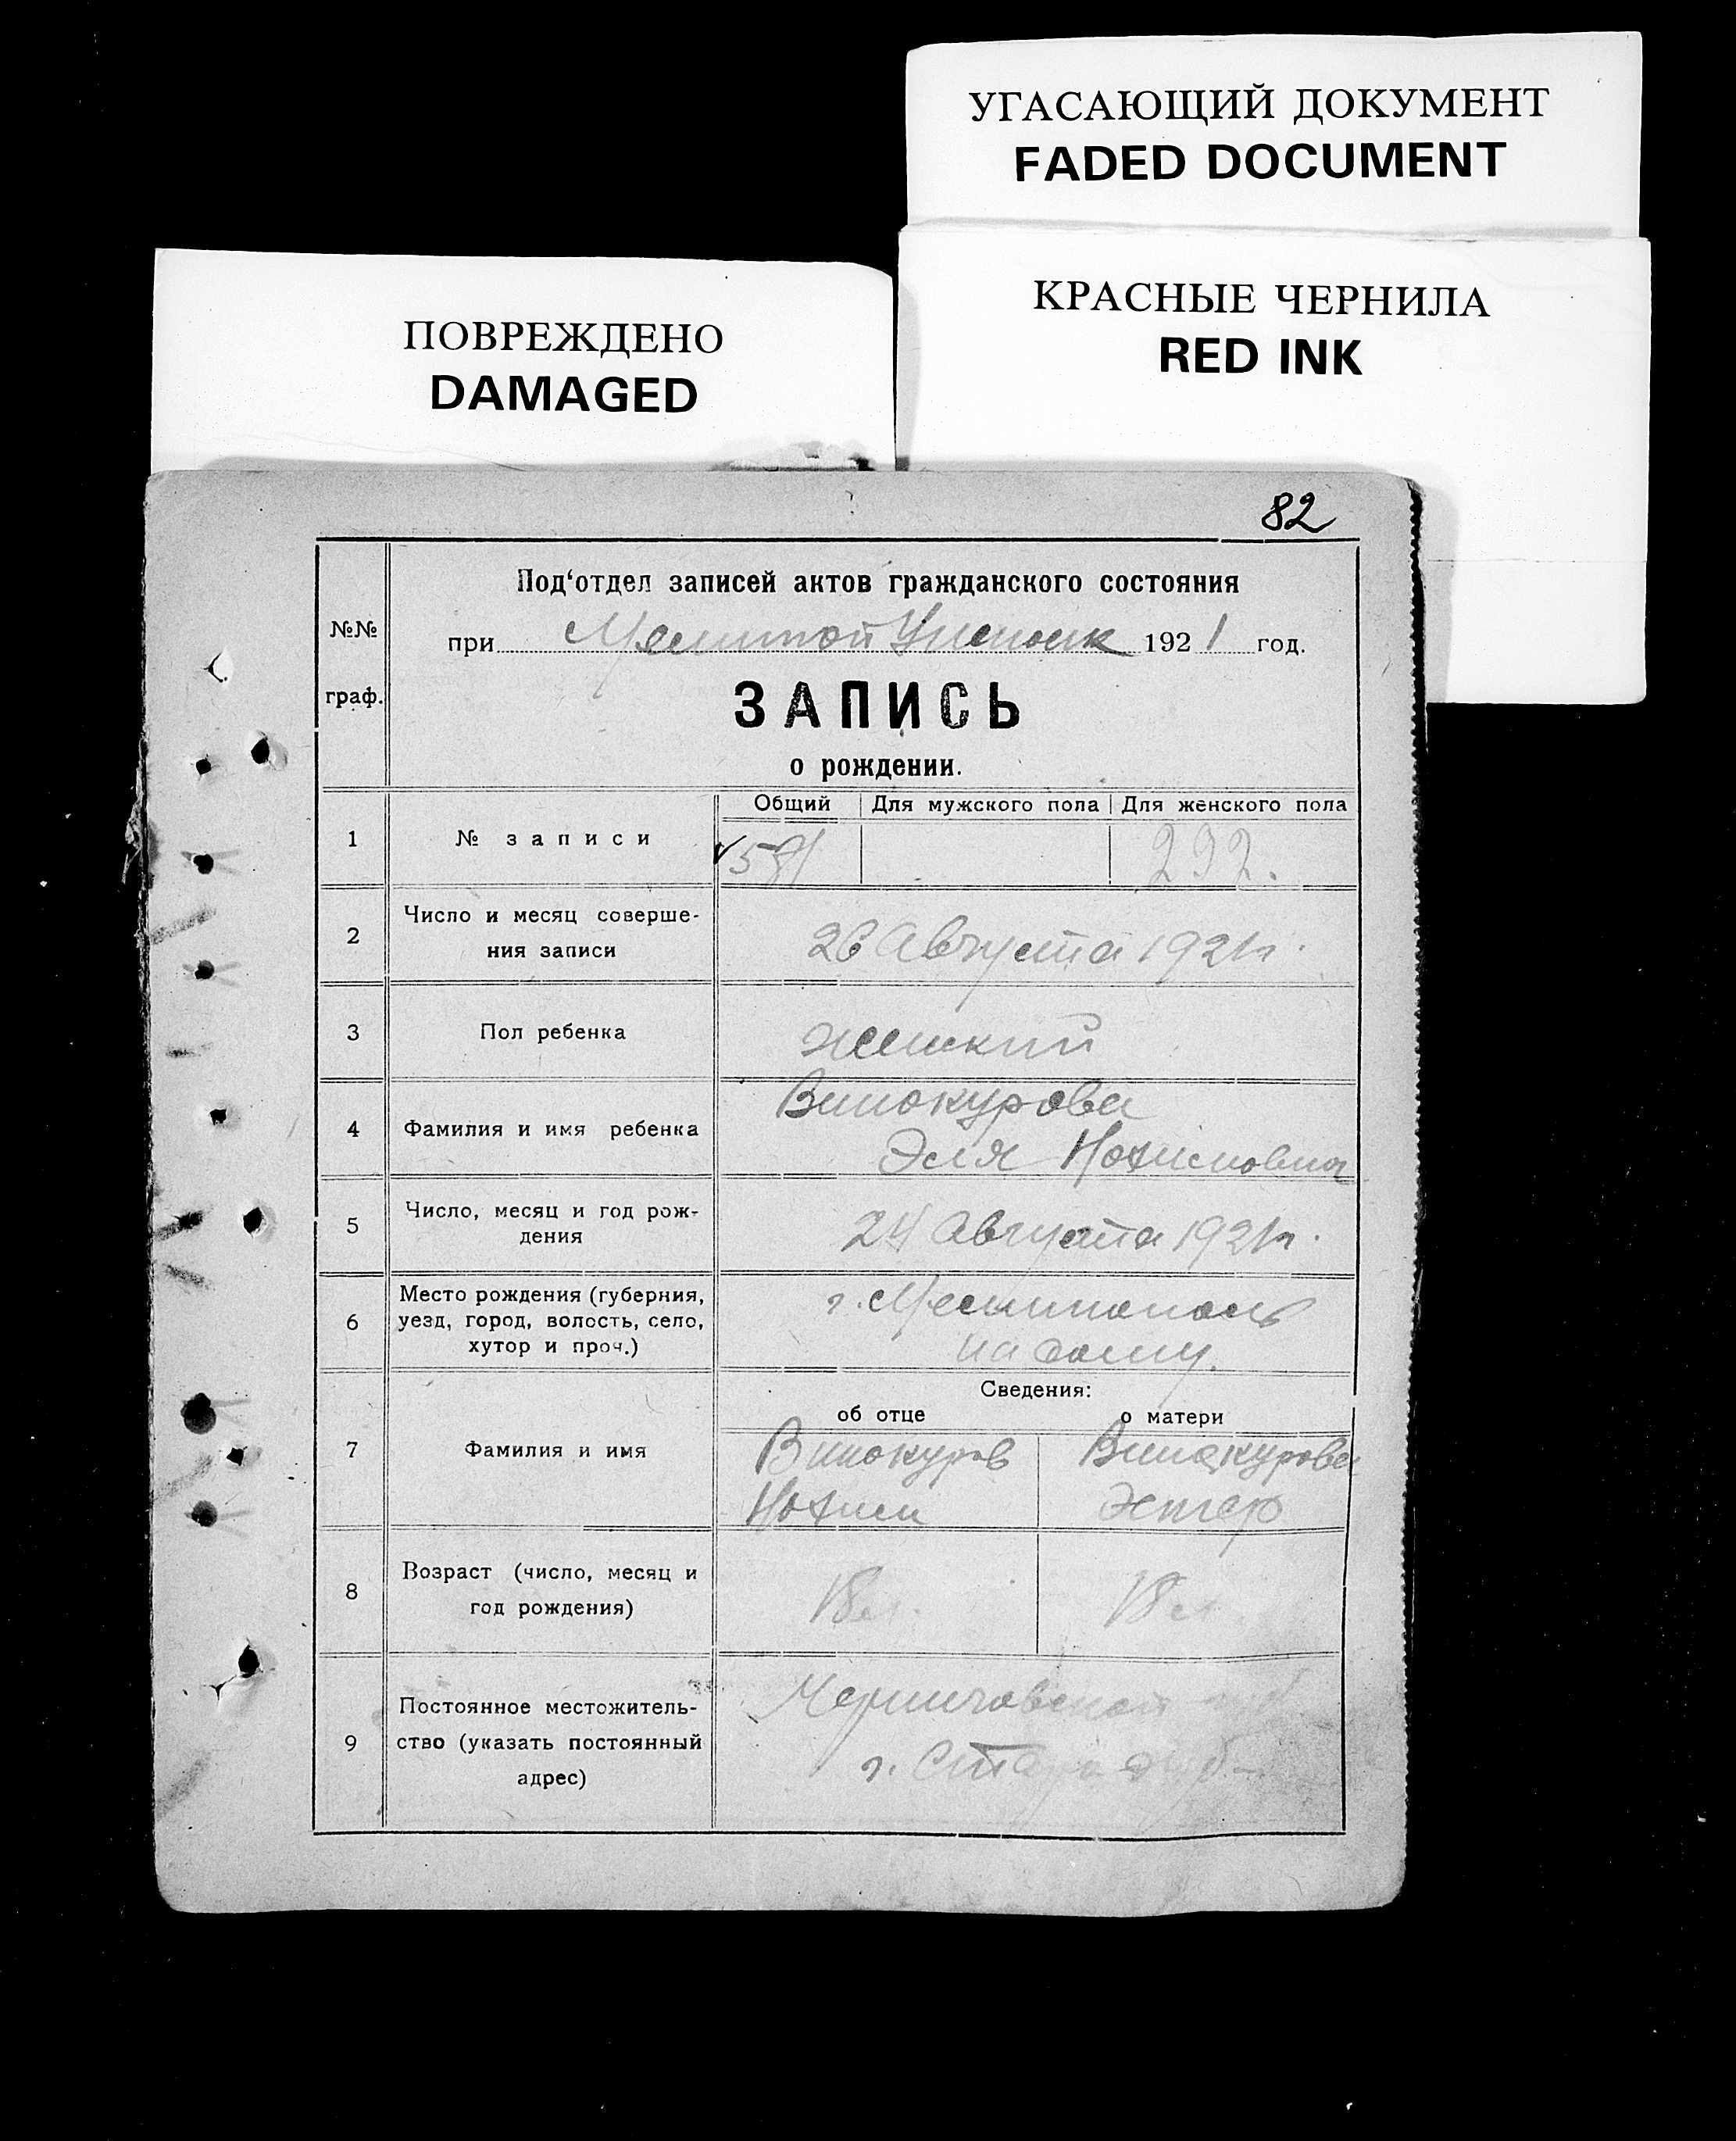 УГАСАЮЩИЙ ДОКУМЕНТ
FADED DOCUMENT
КРАСНЫЕ ЧЕРНИЛА
RED INK
ПОВРЕЖДЕНО
DAMAGED
82
№№
граф.
Под‘отдел записей актов гражданского состояния
при 1921 год.
ЗАПИСЬ
о рождении.
Общий Для мужского пола Для женского пола
1 № записи 581 292.
2 Число и месяц соверше-
ния записи
26 Августа 1921 г.
3 Пол ребенка женский
4 Фамилия и имя ребенка
Винокурова
Эля Нохимовна
5 Число, месяц и год рож-
дения
24 Августа 1921 г.
6 Место рождения (губерния,
уезд, город, волость, село,
хутор и проч.)
г. Мелитополь
на дому.
Сведения:
об отце о матери
7 Фамилия и имя
Винокуров Винокурова
Нохим Эстер
8 Возраст (число, месяц и
год рождения)
18 л. 18 л.
9 Постоянное местожитель-
ство (указать постоянный
адрес)
Черниговской губ
г. Стародуб